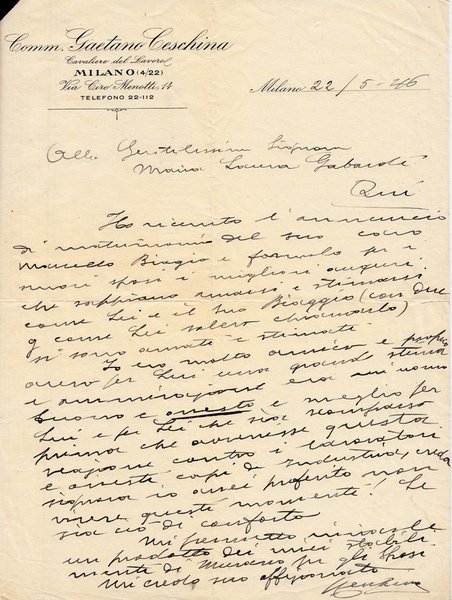 Comm. Gaetano Ceschina
Cavaliere del Lavoro
MILANO (4/22)
Via Ciro Menotti, 14
TELEFONO 22-112
Milano 22/5-46
Alla Gentilissima Signora
Maria Laura Gabardi
Qui
Ho ricevuto l'annuncio
di matrimonio del suo caro
Marcello Biagio e formulo per i
nuovi sposi i migliori auguri
che sappiano amarsi e stimarsi
come Lei e il suo Biaggio (con due
g come Lei soleva chiamarlo)
si sono amati e stimati
Io ero molto amico e proprio
avevo per Lui una grande stima
e ammirazione era un uomo
buono e onesto e meglio per
Lui e per Lei che sia scomparso
prima che avvenisse questa
contro i lavoratori
e onesti capi di industria, creda
signora io avrei preferito non
vivere questi momenti! Le
sia ciò di conforto
Mi permetto inviarle
un prodotto dei miei stabili
menti di Murano per gli sposi
Mi creda suo affezionato
Ceschina